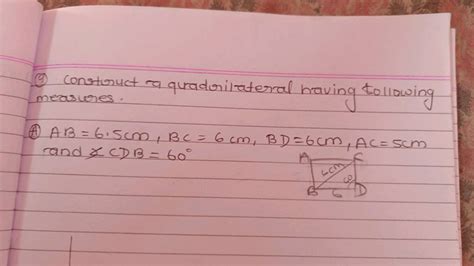 9) construct a quadrilateral having following
measures.
A) AB = 6.5cm, BC = 6cm, BD = 6cm, AC = 5cm
and ∠CDB = 60°
A C
6cm
60
B 6 D